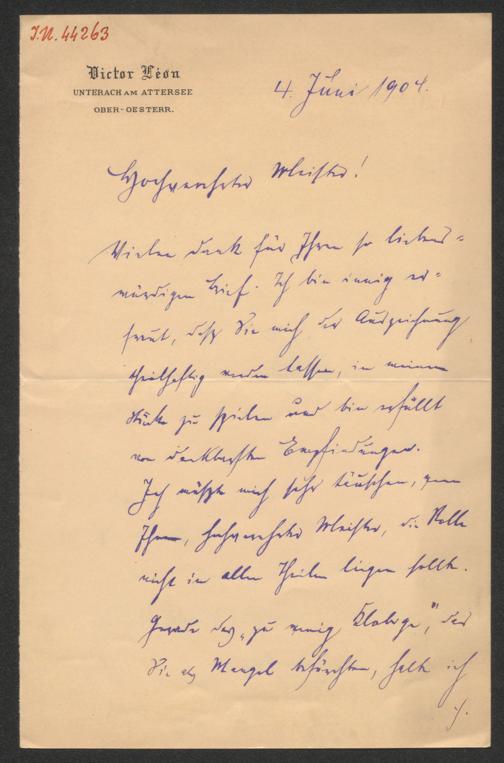 I.N. 44263
Victor Léon
UNTERACH AM ATTERSEE
OBER-OESTERR.
4. Juni 1904.
Hochverehrter Meister!
Vielen Dank für Ihren so liebens-
würdigen Brief. Ich bin innig er-
freut, daß Sie mich der Auszeichnung
theilhaftig werden lassen, in meinem
Stücke zu spielen und bin erfüllt
von dankbarsten Empfindungen.
Ich müßte mich sehr täuschen, wenn
Ihnen, hochverehrter Meister, die Rolle
nicht in allen Theilen liegen sollte.
Gerade das „zu wenig", das
Sie als Mangel befürchten, halte ich